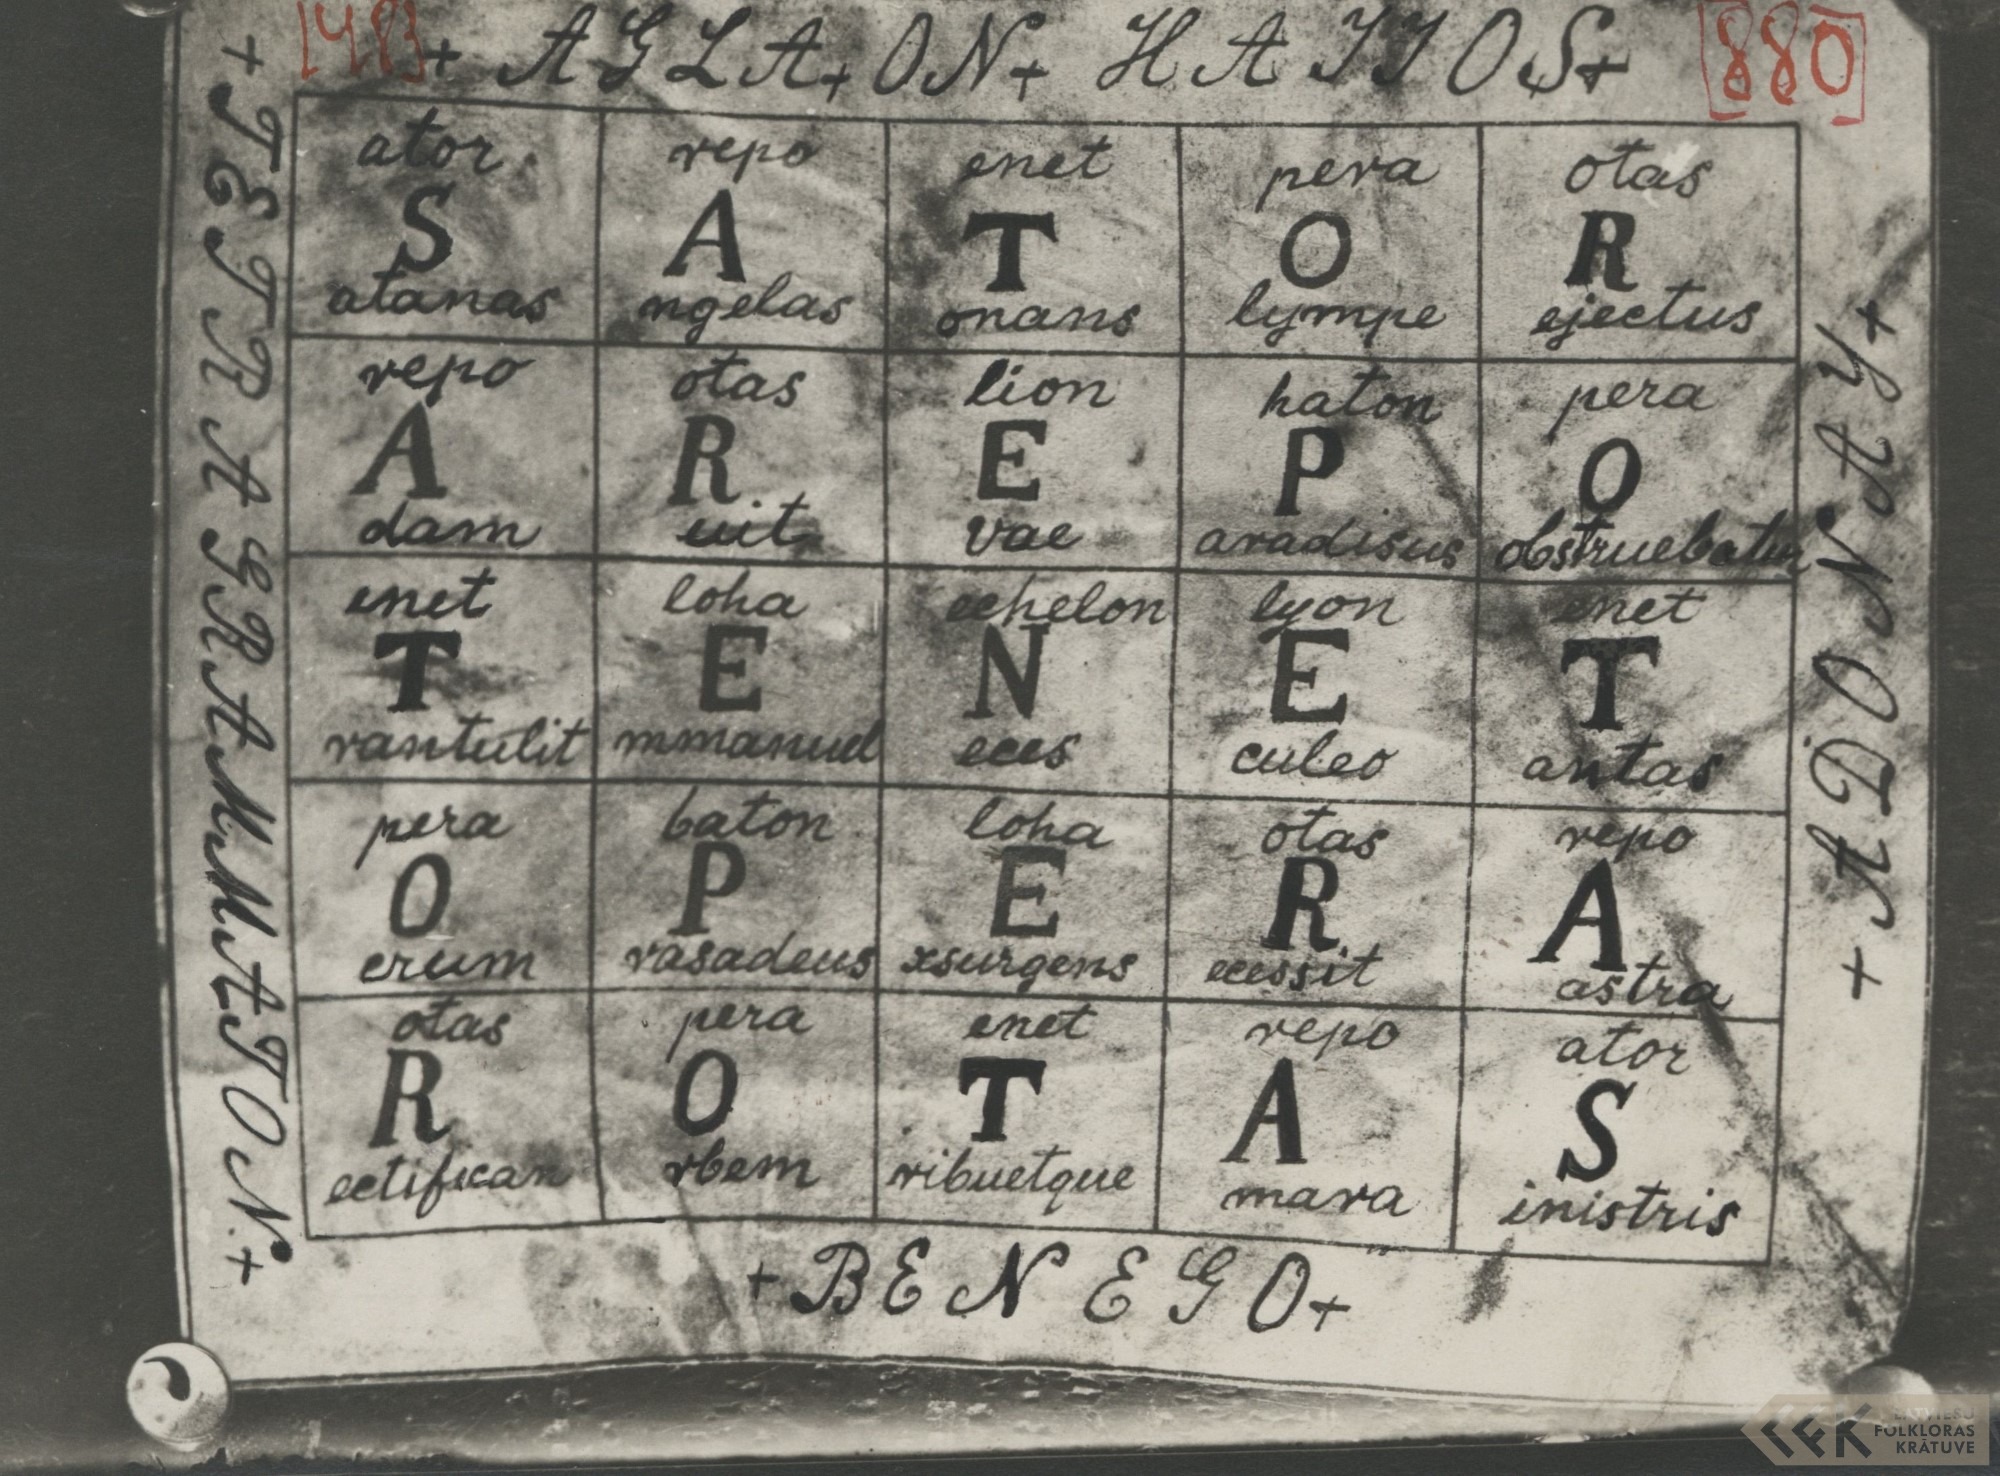 [1483] + AGLA + ON + HAJJOS + [880]
+ TETRAGRAMMATON +
ator repo enet pera otas
S A T O R
atanas ngelas onans lympe ejectus
repo otas lion haton pera
A R E P O
dam uit vae aradisus obstruebatur
enet loha echelon lyon enet
T E N E T
rantulit mmanuel eces culeo antas
pera baton loha otas repo
O P E R A
crum rasadeus xsurgens ecessit astra
otas pera enet repo ator
R O T A S
ectifican rbem ribuetque mara inistris
+ ADONAY +
+ BENEGO +
LATVIEŠU
FOLKLORAS
KRĀTUVE